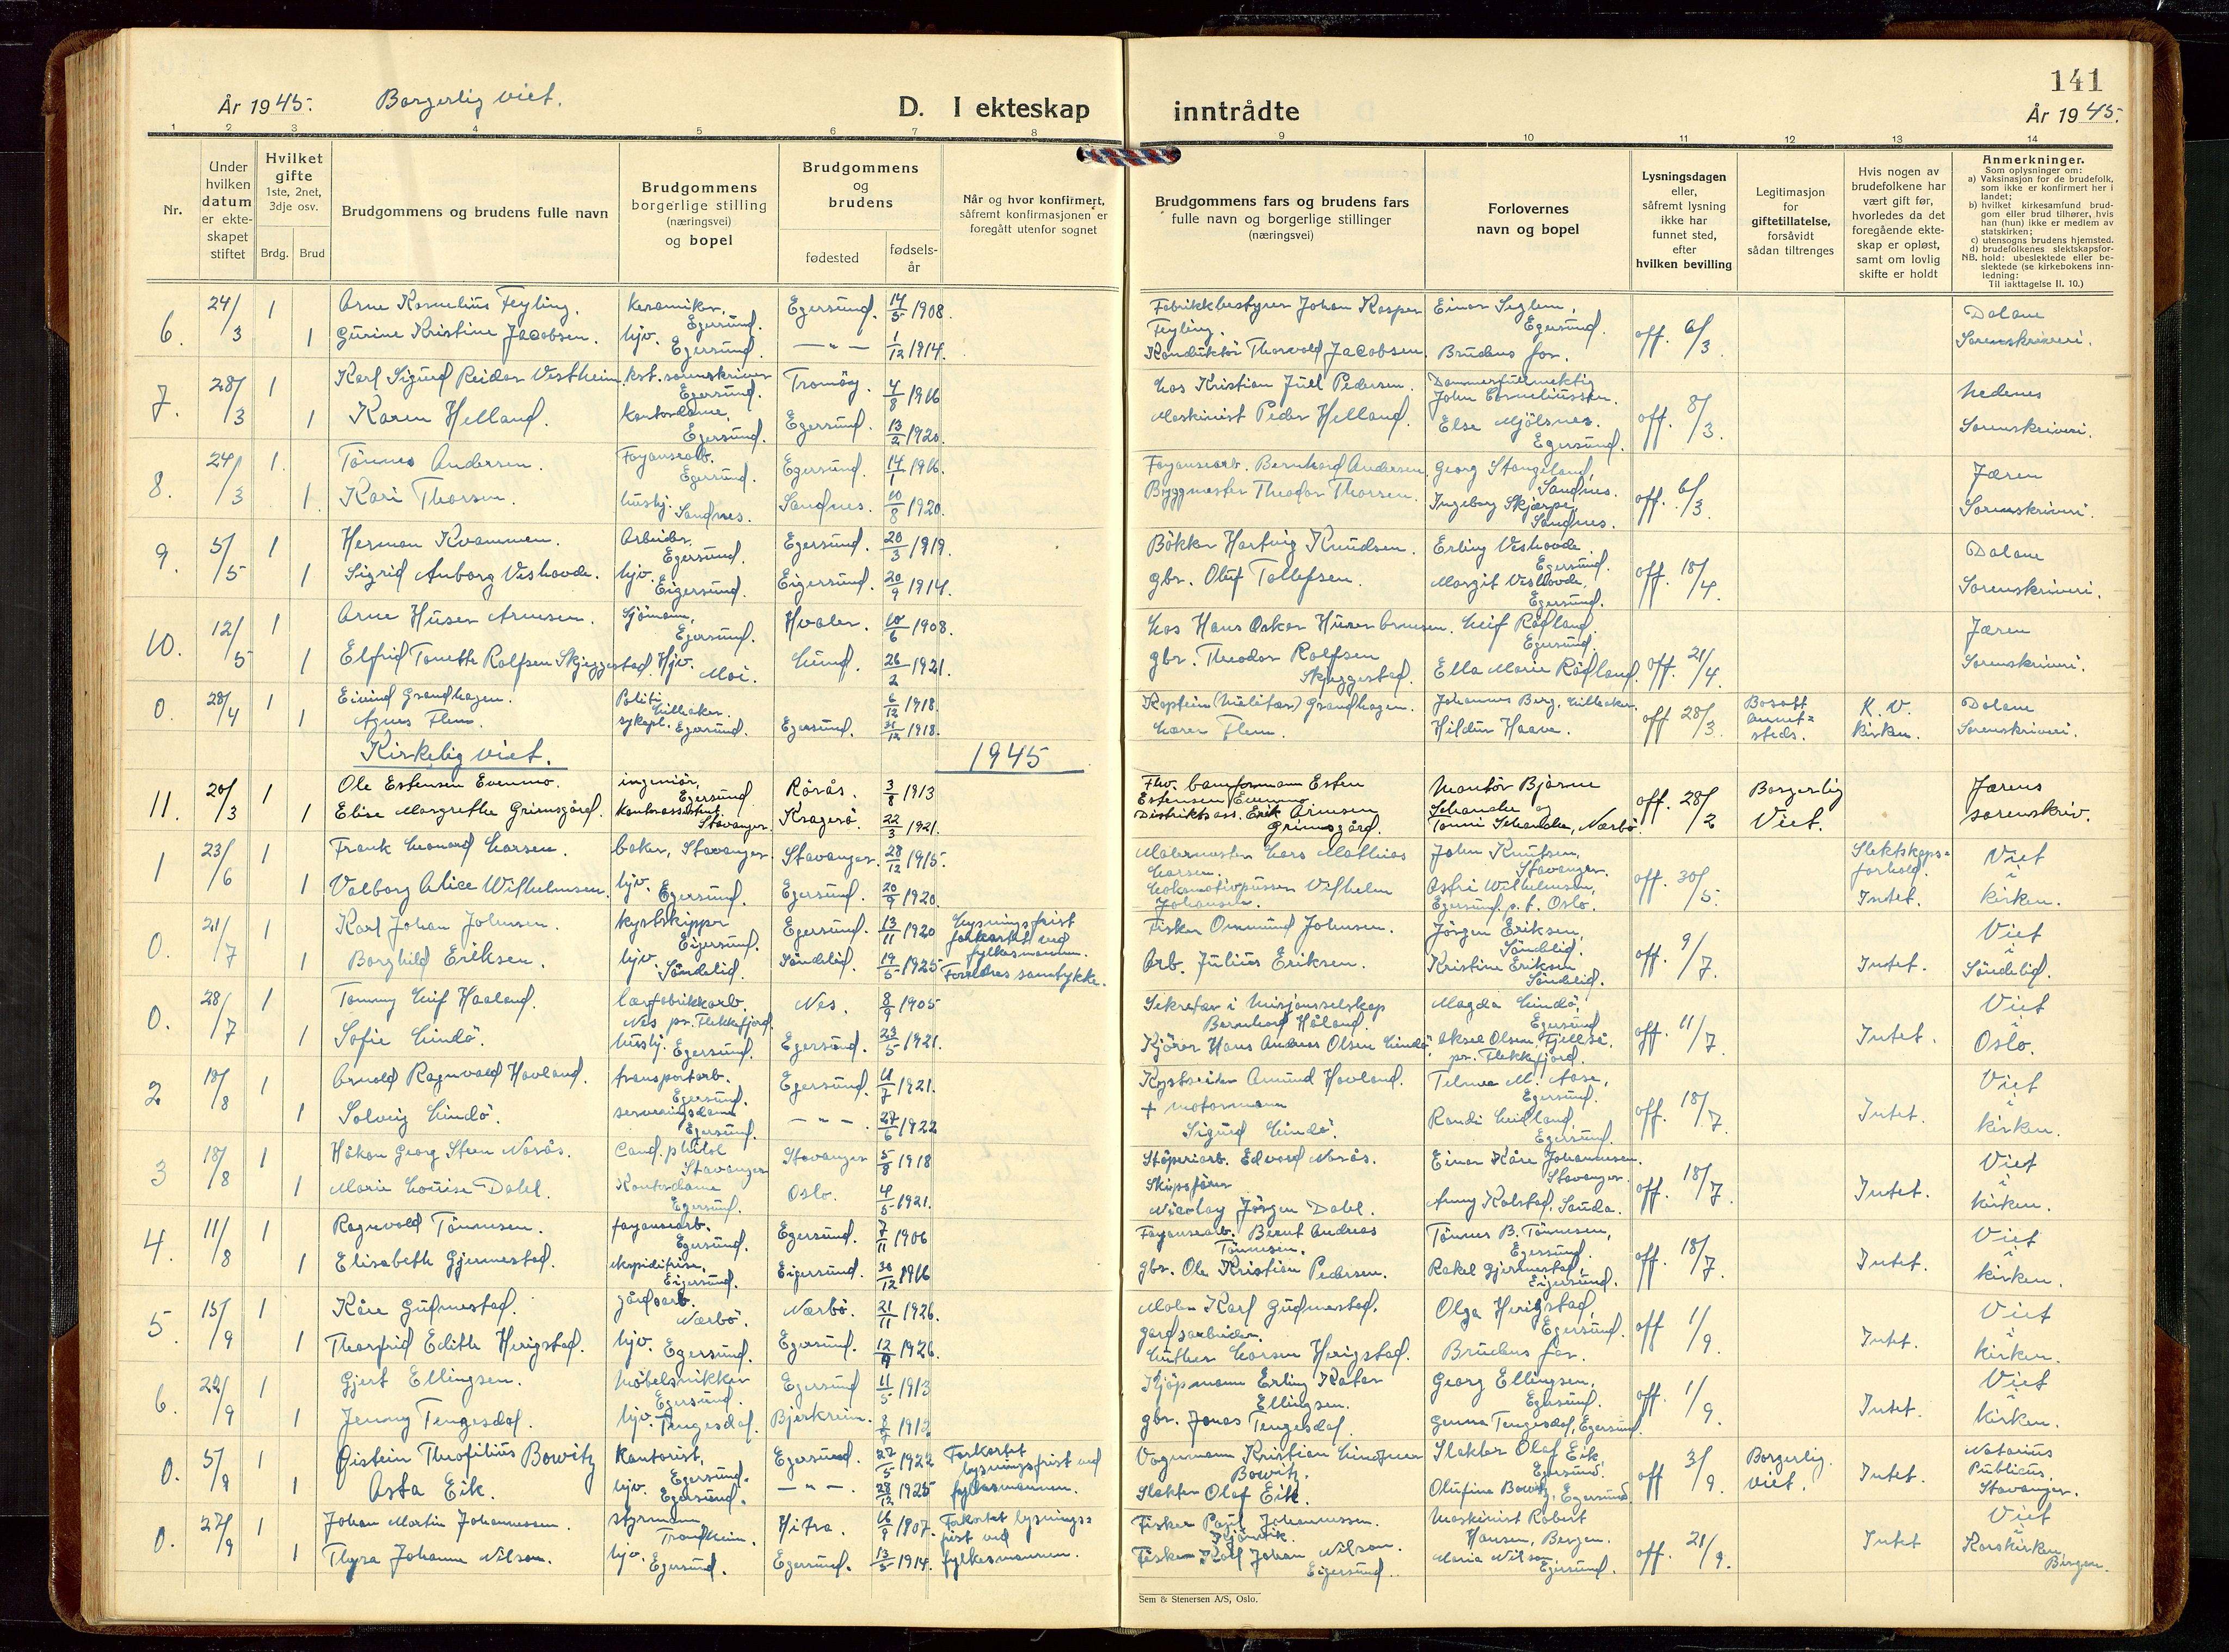 141
År 1945. Borgerlig viet. D. I ekteskap inntrådte År 1945.
1 2 3 4 5 6 7 8 9 10 11 12 13 14
Nr.
Under hvilken datum er ekteskapet stiftet
Hvilket gifte 1ste, 2net, 3dje osv.
Brdg. Brud
Brudgommens og brudens fulle navn
Brudgommens borgerlige stilling (næringsvei) og bopel
Brudgommens og brudens
fødested
fødselsår
Når og hvor konfirmert, såfremt konfirmasjonen er foregått utenfor sognet
Brudgommens fars og brudens fars fulle navn og borgerlige stillinger (næringsvei)
Forlovernes navn og bopel
Lysningsdagen eller, såfremt lysning ikke har funnet sted, efter hvilken bevilling
Legitimasjon for giftetillatelse, forsåvidt sådan tiltrenges
Hvis nogen av brudefolkene har vært gift før, hvorledes da det foregående ekteskap er opløst, samt om lovlig skifte er holdt
Anmerkninger.
Som oplysninger om:
a) Vaksinasjon for de brudefolk, som ikke er konfirmert her i landet;
b) hvilket kirkesamfund brudgom eller brud tilhører, hvis han (hun) ikke er medlem av statskirken;
c) utensogns brudens hjemsted.
d) brudefolkenes slektskapsforhold: ubeslektede eller beslektede (se kirkebokens innledning:
NB.
Til iakttagelse II. 10.)
6. 24/3 1 Arne Kornelius Feyling. keramiker, Egersund. Egersund. 14/5 1908. Fabrikkbestyrer Johan Kasper Feyling. Einar Seglem, Egersund. off. 6/3 Dalane
1 Gurine Kristine Jacobsen. hjv. Egersund. — " — 1/12 1914. Konduktør Thorvald Jacobsen. Brudens far. Sorenskriveri.
7. 28/3 1 Karl Sigurd Reidar Vestheim. kst. sorenskriver Egersund. Tromöy. 4/8 1916 Los Kristian Juell Pedersen. Dommerfullmektig John Corneliussen. off. 8/3. Nedenes
1 Karen Helland. kontordame, Egersund. Egersund. 13/2 1920. Maskinist Peder Helland. Else Mjölsnes. Egersund. Sorenskriveri.
8. 24/3 1. Tönnes Andersen. Fayansearb. Egersund. Egersund. 14/1 1916. Fayansearb. Bernhard Andersen. Georg Stangeland, Sandnes. off. 6/3. Jæren
1. Kari Thorsen. hushj. Sandnes. Sandnes. 10/8 1920. Byggmester Theodor Thorsen. Ingeborg Skjærpe, Sandnes. Sorenskriveri.
9. 5/5 1 Herman Kvammen. Arbeider, Egersund. Egersund. 20/3 1919. Bökker Hartvig Knudsen. Erling Veshovde Egersund. off. 18/4. Dalane
1 Sigrid Anborg Veshovde. hjv. Eigersund. Eigersund. 20/9 1914. gbr. Oluf Tollefsen. Margit Veshovde, Egersund. Sorenskriveri.
10. 12/5 1 Arne Huser Arnesen. Sjömann, Egersund. Hvaler. 10/6 1908. Los Hans Oskar Huser Arnesen. Leif Rödland, Egersund. off. 21/4. Jæren
1 Elfrid Tonette Rolfsen Skjeggestad. Hjv. Moi. Lund. 26/2 1921. gbr. Theodor Rolfsen Skjeggestad. Ella Marie Rödland. Sorenskriveri.
0. 28/4 1 Eivind Grandhagen. Politi Lilleaker. 6/12 1918. Kaptein (Militær) Grandhagen. Johannes Berg, Lilleaker. off 28/3. Bosatt annetsteds. K. V. kirken. Dalane
1 Agnes Flem. sykepl. Egersund. Egersund. 31/12 1918. Lærer Flem. Hildur Haave. Sorenskriveri.
Kirkelig viet. 1945
11. 20/3 1 Ole Estensen Evenmo. ingeniør, Egersund Rörås. 3/8 1913 Estensen Evenmo. Montör Bjarne Schanche og off. 28/2 Borgerlig Viet. Jærens
1 Elise Margrethe Grimsgård. kontorassistent Stavanger. Kragerö. 22/3 1921. Distriktsass. Erik Arnesen Grimsgård. Tonni Schanche, Nærbö. sorenskriv.
1 23/6 1 Frank Leonard Larsen. baker, Stavanger. Stavanger. 28/12 1915. Malermester Lars Mathias Larsen. John Knutsen, Stavanger. off. 30/5. Slektskapsforhold. Viet i
1 Valborg Alice Wilhelmsen. hjv. Egersund. Egersund. 20/9 1920. Lokomotivpusser Vilhelm Johansen. Astri Wilhelmsen, Egersund. p. t. Oslo. Intet. kirken.
0. 21/7 1 Karl Johan Johnsen. kystskipper Eigersund. Egersund. 13/11 1920 Lysningsfrist forkortet ved fylkesmannen. Fisker Ommund Johnsen. Jörgen Eriksen, Söndelid. off. 9/7. Viet i
1 Borghild Eriksen. hjv. Söndelid. Söndelid. 19/5 1925 Foreldres samtykke. Arb. Julius Eriksen. Kristine Eriksen Söndelid. Intet. Söndelid.
0. 28/7 1 Tommy Leif Haaland. lærfabrikkarb. Nes pr. Flekkefjord. Nes. 8/9 1905 Sekretær i Misjonsselskap Bernhard Håland. Magda Lindö, Egersund off. 11/7. Viet i
1 Sofie Lindö. hushj. Egersund. Egersund. 23/5 1921. Kjörer Hans Andreas Olsen Lindö. Aksel Olsen, Fjellså, pr. Flekkefjord. Intet. Oslo.
2 18/8 1 Arnold Ragnvald Hovland. transportarb. Egersund. Egersund. 11/7 1921. Amund Hovland. Telmea M. Aase, Egersund. off. 18/7. Viet i
1 Solveig Lindö. serveringsdame Egersund. — " — . 27/6 1922 + Motormann Sigurd Lindö. Randi Leidland, Egersund. Intet. kirken.
3 18/8 1 Håkon Georg Steen Norås. Cand. philol Stavanger Stavanger 5/8 1918 Stöperiarb. Edvard Norås. Einar Kåre Johannesen. Stavanger. off. 18/7. Viet i
1 Marie Louise Dahl. Kontordame Egersund. Oslo. 4/5 1921. Skipsförer Nicolay Jörgen Dahl. Anny Kolstad, Sauda. Intet. kirken.
4. 11/8 1 Ragnvald Tönnesen. fayansearb. Egersund. Egersund. 7/11 1906 Fayansearb. Bernt Andreas Tönnesen. Tönnes B. Tönnesen, Egersund. off. 18/7. Viet i
1 Elisabeth Gjermestad. ekspeditrise, Eigersund. Eigersund. 30/12 1916 gbr. Ole Kristian Pedersen. Rakel Gjermestad, Eigersund. Intet. kirken.
5. 15/9 1 Kåre Gudmestad. gårdsarb. Nærbö. Nærbö. 21/11 1926. Maler Karl Gudmestad. Olga Herigstad, Egersund. off 1/9. Viet i
1 Thorfrid Edith Herigstad. hjv. Egersund. Egersund. 12/9 1926. gardsarbeider. Luther Larsen Herigstad. Brudens far. Intet. kirken.
6. 22/9 1 Gjert Ellingsen. Möbelsnikker Egersund. Egersund 11/5 1913 Kjöpmann Erling Kater Ellingsen. Georg Ellingsen, Egersund. off. 1/9. Viet i
1 Jenny Tengesdal. hjv. Tengesdal. Bjerkreim. 1912. gbr. Jonas Tengesdal. Genna Tengesdal, Egersund. Intet. kirken.
0. 5/9 1 Øistein Theofilius Bowitz Kontorist, Egersund. Egersund. 22/5 1922 Forkortet lysningsfrist ved fylkesmannen. Vognmann Kristian Bowitz. Slakter Olaf Eik Egersund. off 3/9. Borgerlig viet. Notarius Publicus,
1 Asta Eik. hjv. Egersund. — " — . 28/12 1925 Slakter Olaf Eik. Olufine Bowitz, Egersund. Intet. Stavanger.
0. 27/9 1 Johan Martin Johannessen. styrmann Trondheim. Hitra. 16/9 1907. Forkortet lysningsfrist ved fylkesmannen. Fisker Paul Johannessen. Maskinist Robert Hansen, Bergen. off. 21/9. Viet i
1 Thyra Johanne Nilsen. hjv. Egersund. Egersund. 13/5 1914. Fisker Karl Johan Nilsen. Eigersund. Maria Nilsen, Egersund. Intet Korskirken, Bergen.
Sem & Stenersen A/S, Oslo.